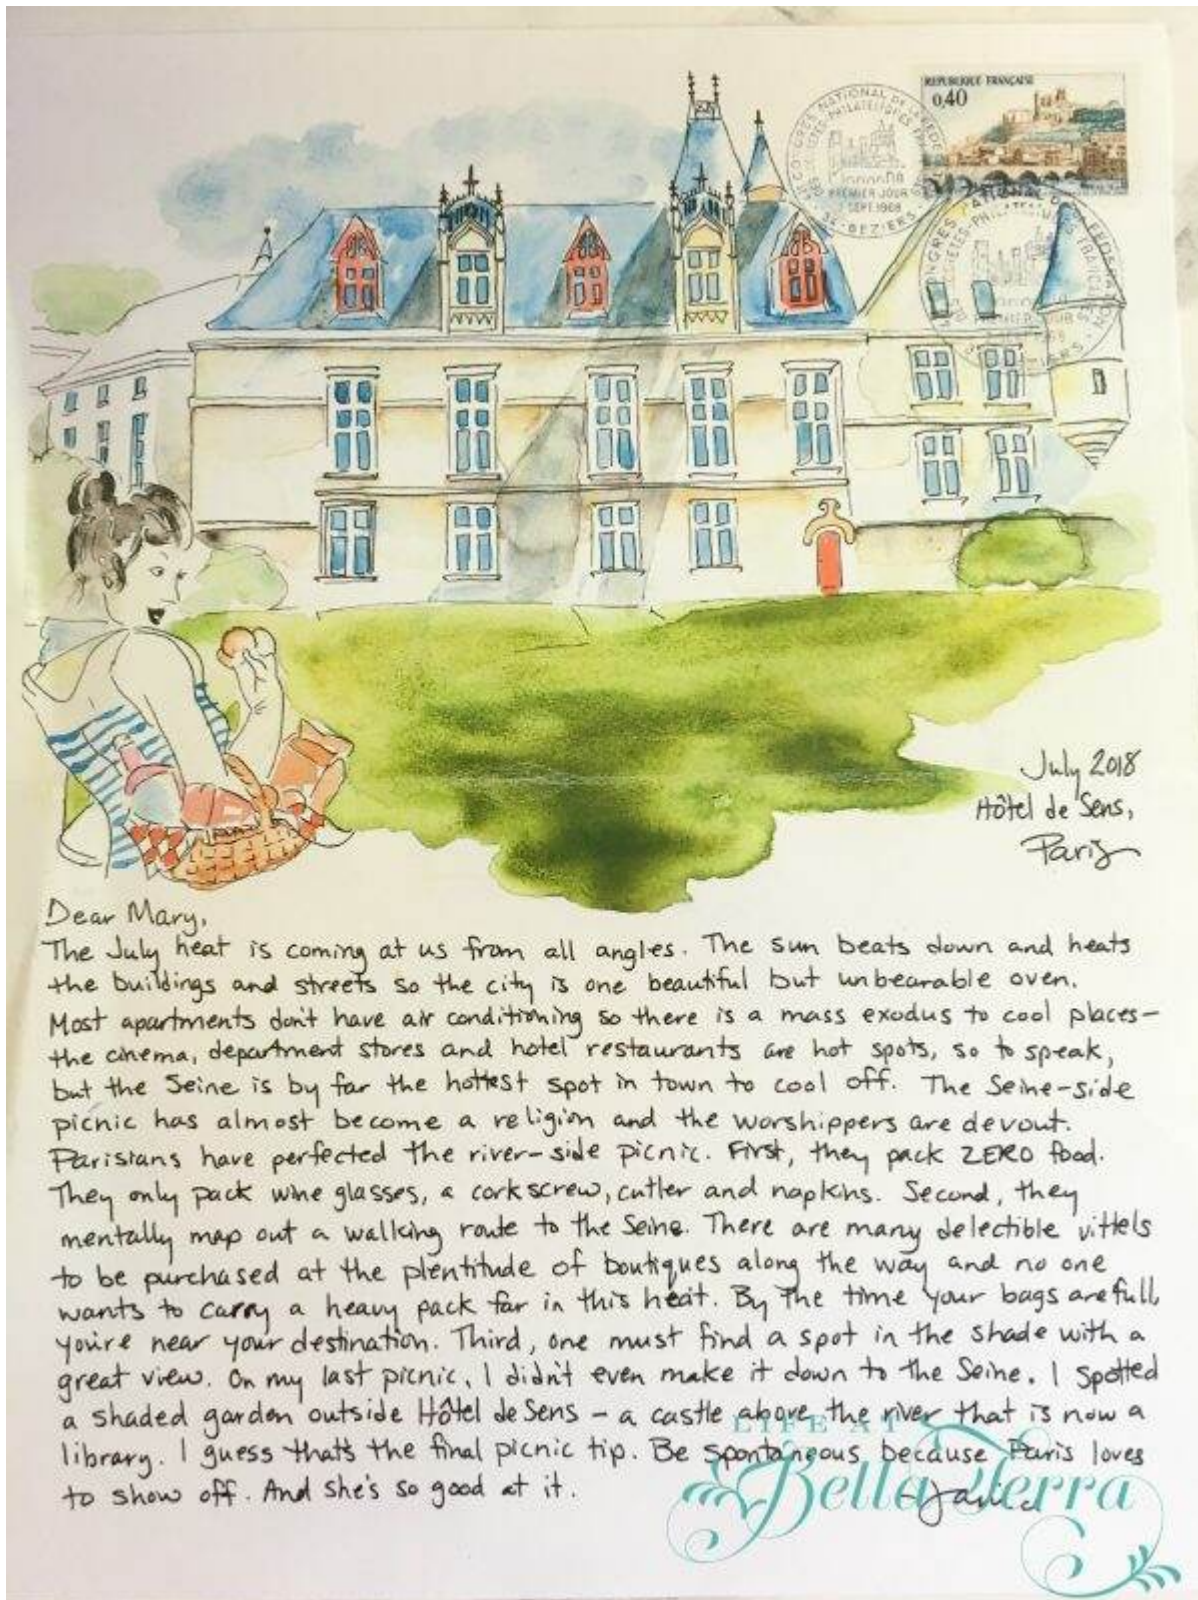 REPUBLIQUE FRANÇAISE
0,40
PREMIER JOUR
SEPT. 1968
34 - BEZIERS
July 2018
Hôtel de Sens,
Paris
Dear Mary,
The July heat is coming at us from all angles. The sun beats down and heats
the buildings and streets so the city is one beautiful but unbearable oven.
Most apartments don't have air conditioning so there is a mass exodus to cool places –
the cinema, department stores and hotel restaurants are hot spots, so to speak,
but the Seine is by far the hottest spot in town to cool off. The Seine-side
picnic has almost become a religion and the worshippers are devout.
Parisians have perfected the river-side picnic. First, they pack ZERO food.
They only pack wine glasses, a corkscrew, cutler and napkins. Second, they
mentally map out a walking route to the Seine. There are many delectible vittels
to be purchased at the plentitude of boutiques along the way and no one
wants to carry a heavy pack far in this heat. By the time your bags are full,
you're near your destination. Third, one must find a spot in the shade with a
great view. On my last picnic, I didn't even make it down to the Seine. I spotted
a shaded garden outside Hôtel de Sens – a castle above the river that is now a
library. I guess that's the final picnic tip. Be spontaneous because Paris loves
to show off. And she's so good at it.
LIFE AT
Bella Terra